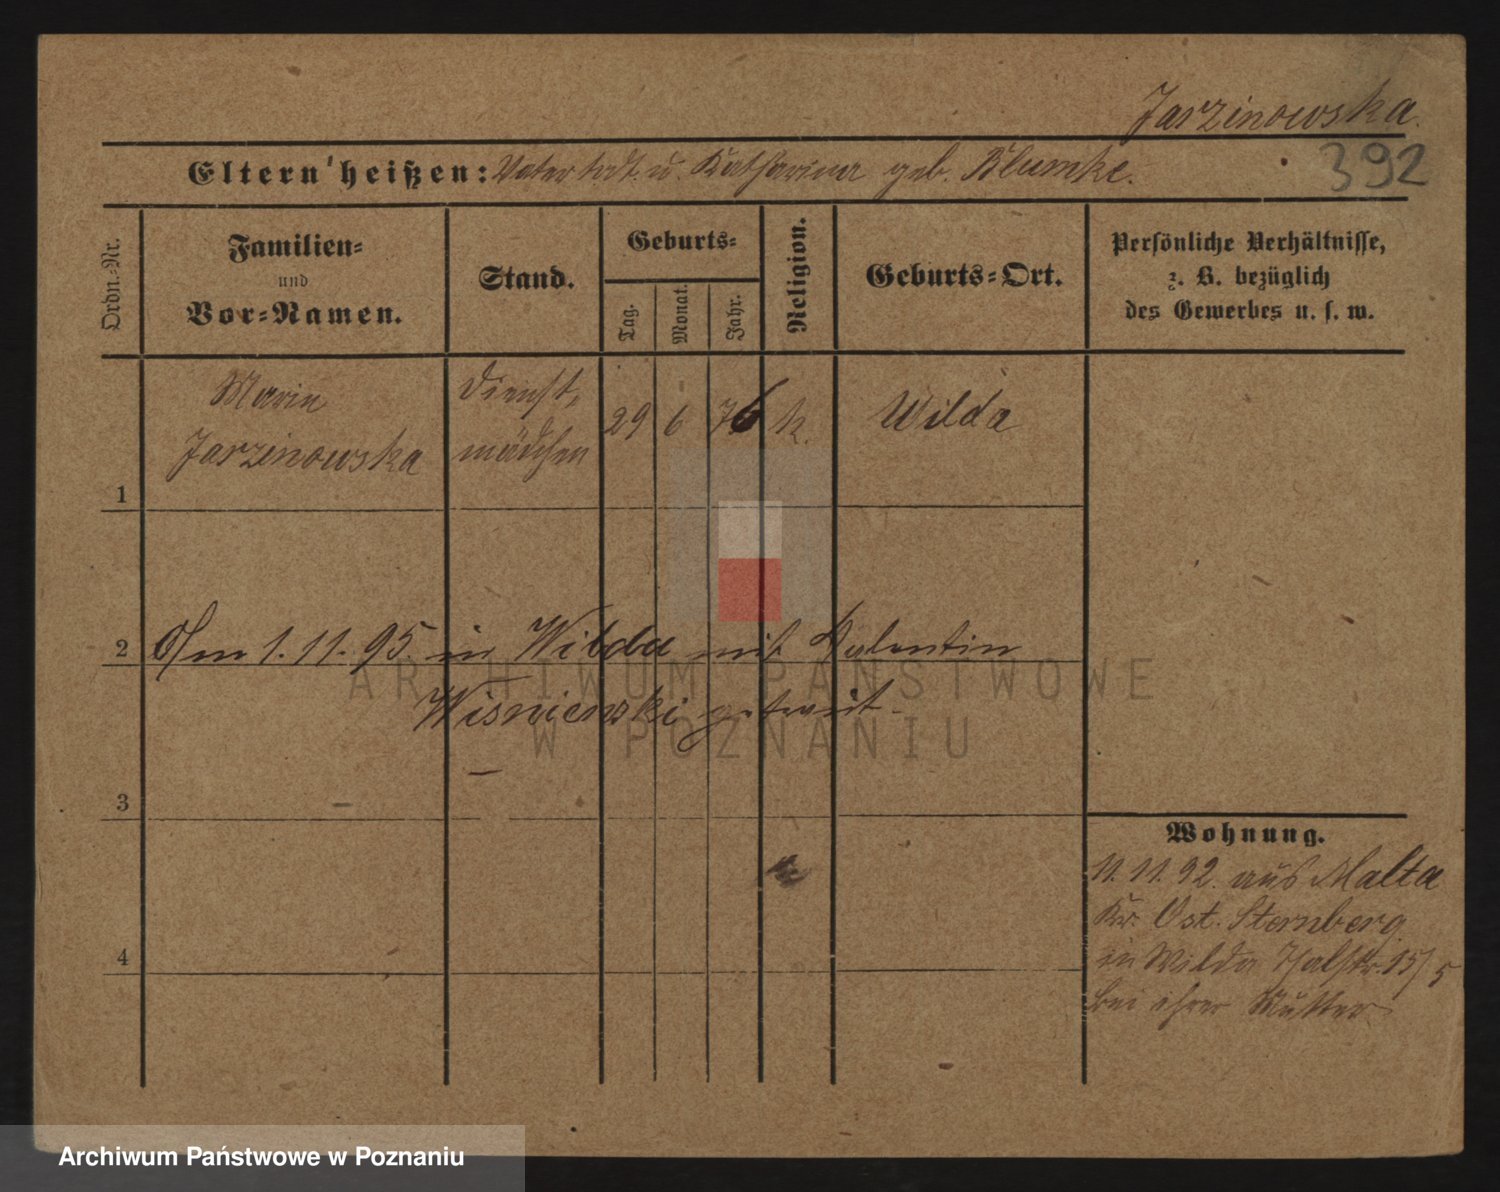 Jarzinowska.
Eltern heißen: Vater todt. u. Katharina geb. Blumke.
392
Ordn.-Nr.
Familien-
und
Vor-Namen.
Stand.
Geburts-
Tag.
Monat.
Jahr.
Religion.
Geburts-Ort.
Persönliche Verhältnisse,
z. B. bezüglich
des Gewerbes u. s. w.
Marie
Jarzinowska
Dienst-
mädchen
29 6 76 k.
Wilda
1
2 Am 1.11.95. in Wilda mit Valentin
Wisnienski getraut.
3
4
Wohnung.
11.11.92. aus Malta
Kr. Ost. Sternberg
in Wilda Thalstr. 15/5
bei ihrer Mutter
ARCHIWUM PAŃSTWOWE
W POZNANIU
Archiwum Państwowe w Poznaniu